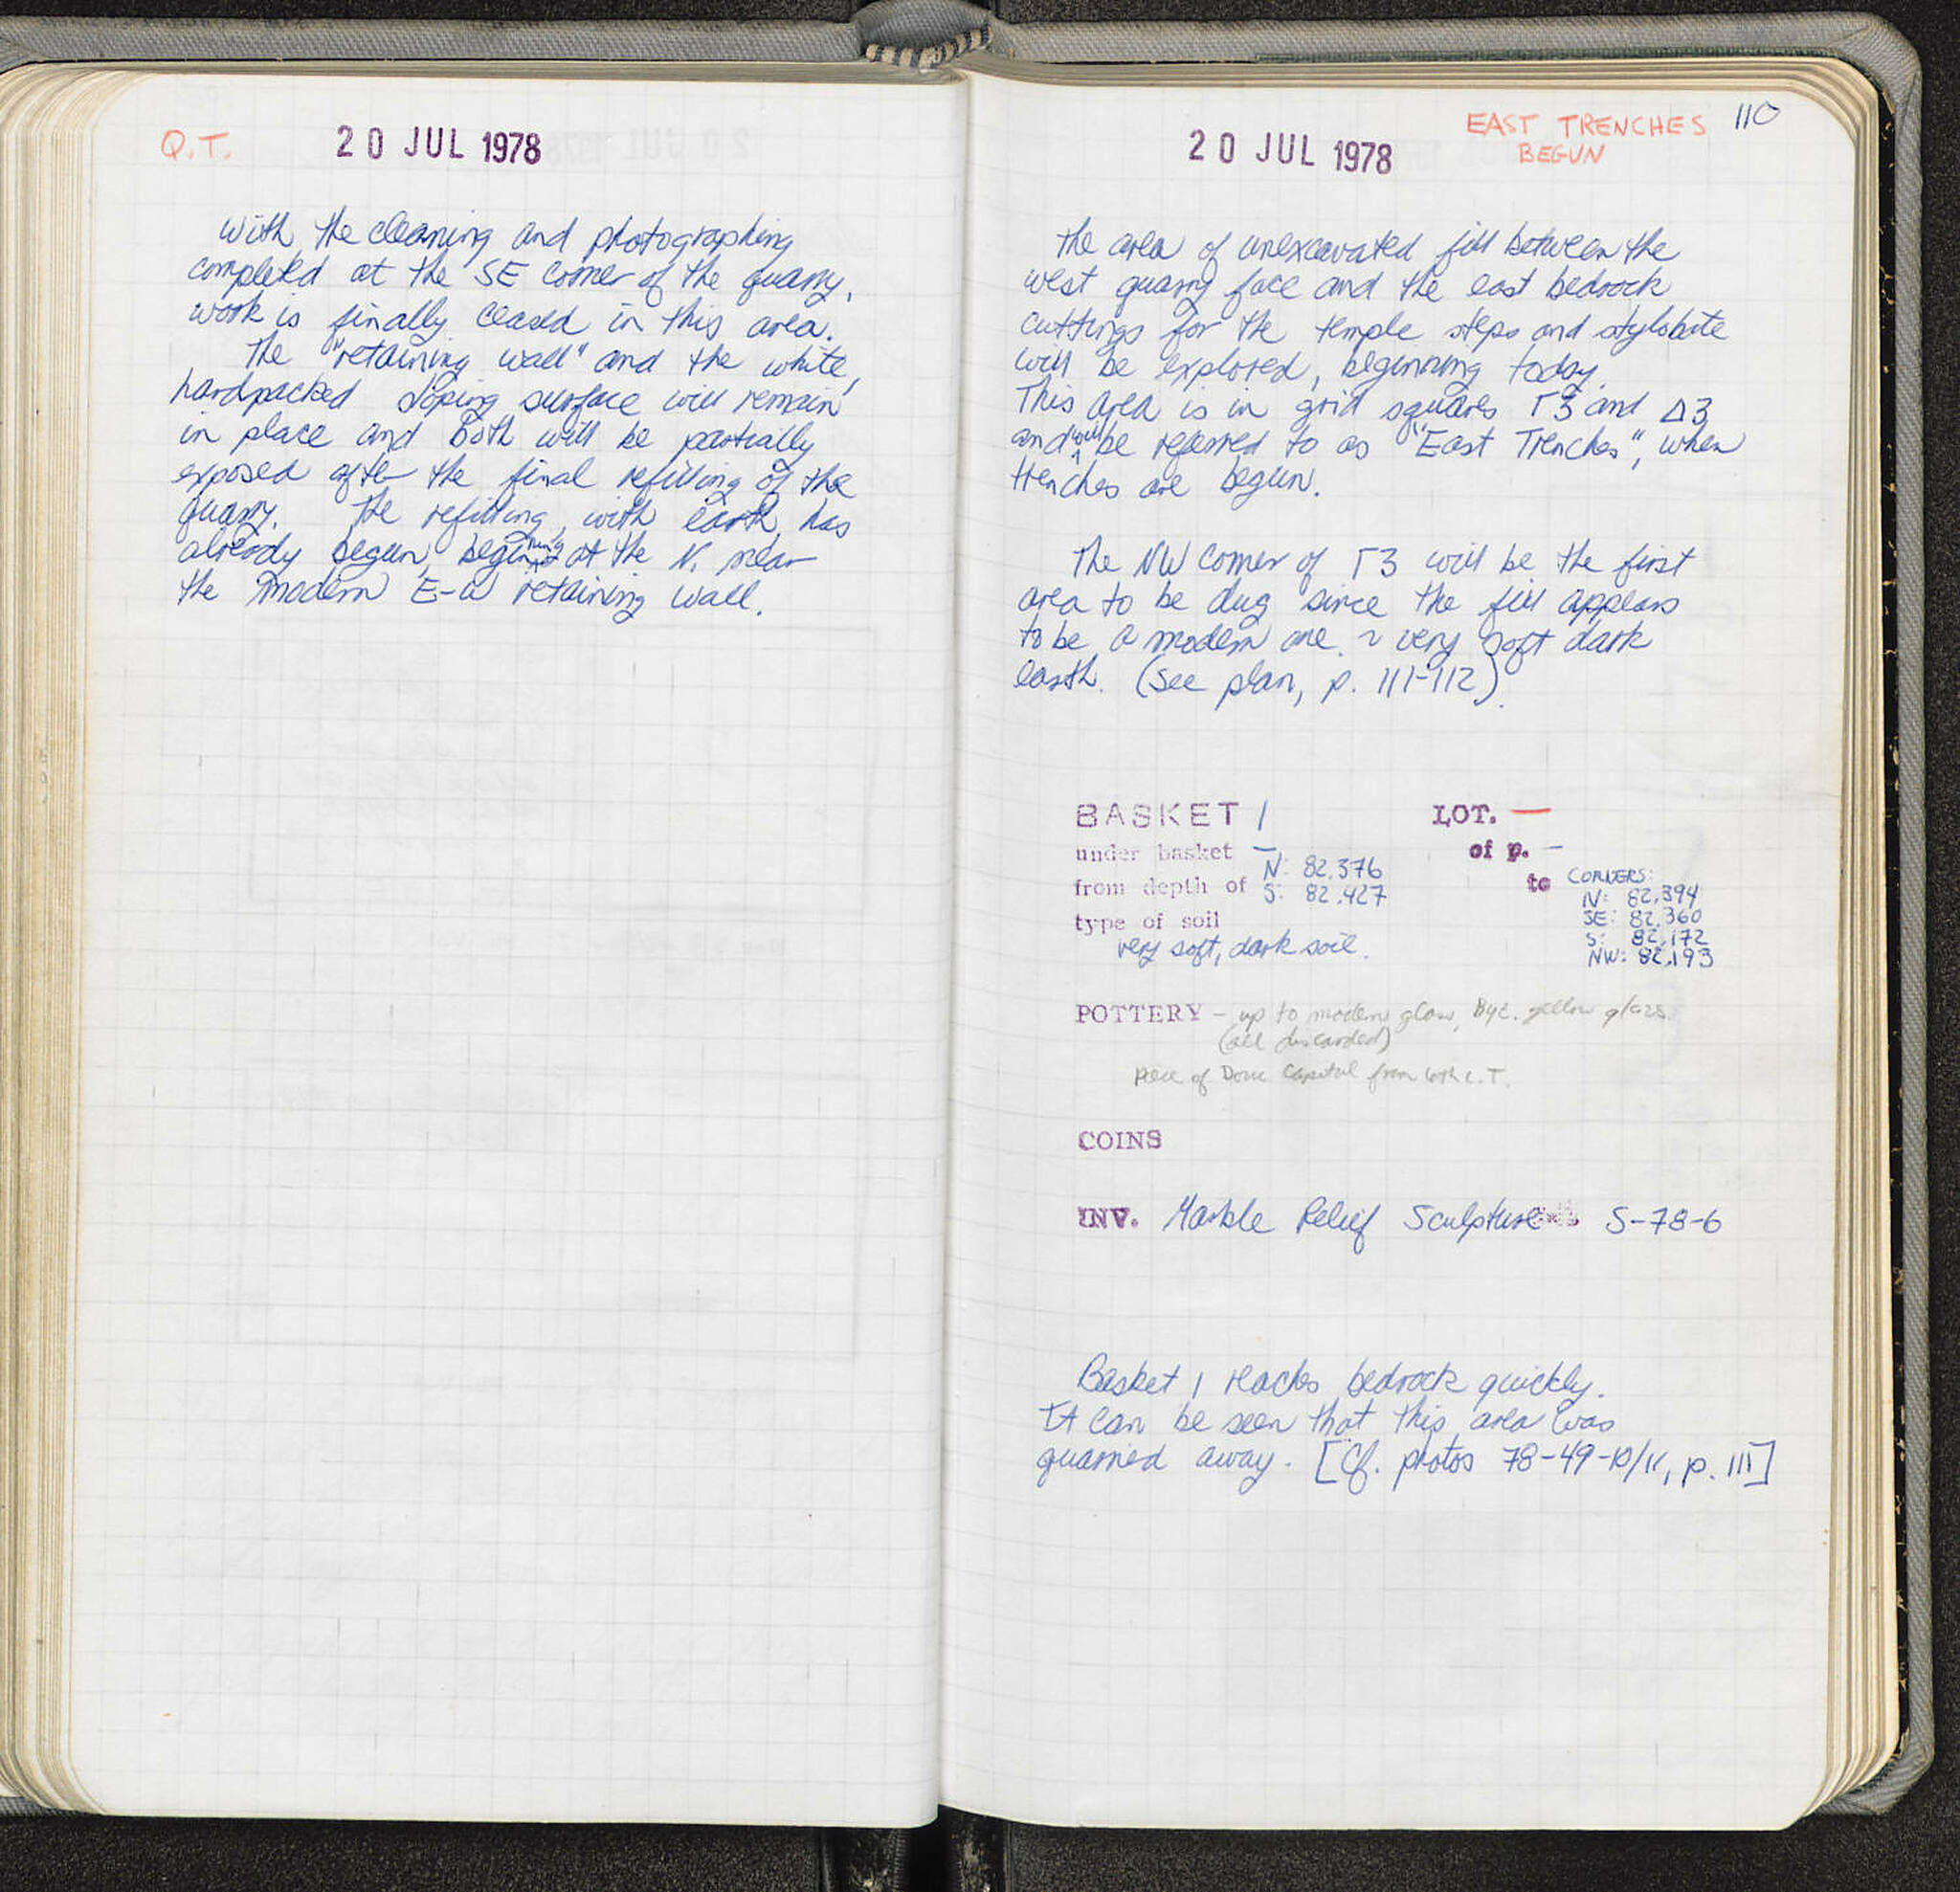 Q.T.
20 JUL 1978
With the cleaning and photographing
completed at the SE corner of the quarry,
work is finally ceased in this area.
The "retaining wall" and the white,
hardpacked sloping surface will remain
in place and both will be partially
exposed after the final refilling of the
quarry. The refilling, with earth, has
already begun, beginning at the N. near
the modern E-W retaining wall.
110
EAST TRENCHES
BEGUN
20 JUL 1978
The area of unexcavated fill between the
west quarry face and the east bedrock
cuttings for the temple steps and stylobate
will be explored, beginning today.
This area is in grid squares Γ3 and Δ3
and will be referred to as "East Trenches", when
trenches are begun.
The NW corner of Γ3 will be the first
area to be dug since the fill appears
to be a modern one ~ very soft dark
earth. (See plan, p. 111-112).
BASKET 1 LOT. —
under basket — of p. —
from depth of N: 82.376
S: 82.427
to CORNERS:
N: 82.394
SE: 82.360
S: 82.172
NW: 82.193
type of soil
very soft, dark soil.
POTTERY - up to modern glass, Byz. yellow glaze
(all discarded)
piece of Doric Capital from 4th c. T.
COINS
INV. Marble Relief Sculpture S-78-6
Basket 1 reaches bedrock quickly.
It can be seen that this area was
quarried away. [Cf. photos 78-49-10/11, p. 111]